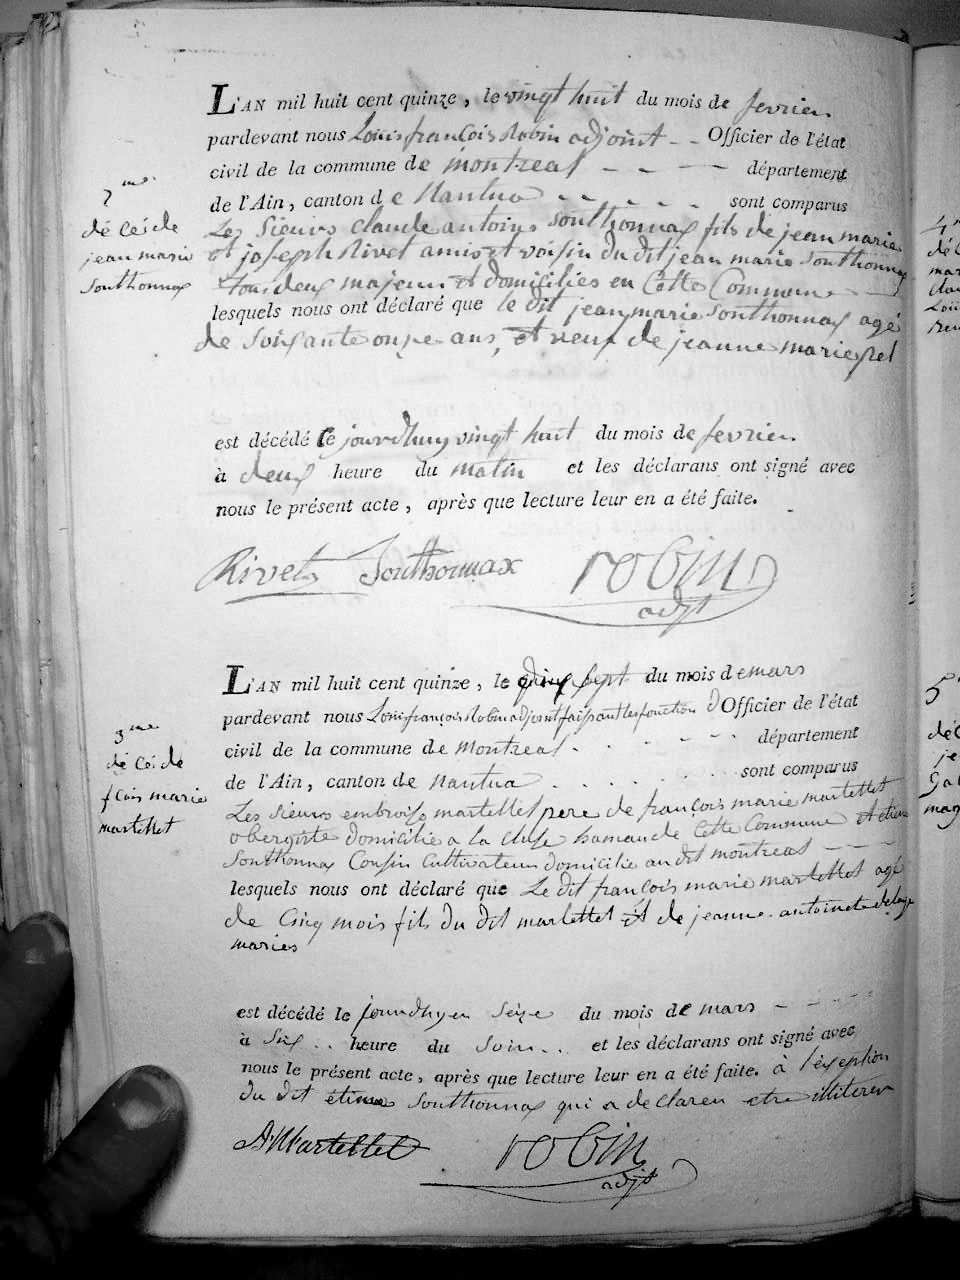 L'AN mil huit cent quinze, le vingt huit du mois de fevrier
pardevant nous Louis françois Robin adjoint -- Officier de l'état
civil de la commune de montreal - - - - département
de l'Ain, canton de Nantua - - - - - - sont comparus
2me
décéi de
jean marie
Southonnax
Les Sieurs claude antoine Southonnax fils de jean marie
et joseph Rivet amis et voisin du dit jean marie Southonnax
tous deux majeurs et domiciliés en Cette Commune
lesquels nous ont déclaré que le dit jean marie Southonnax agé
de Soixante onze ans, et veuf de jeanne marie pel
est décédé le jourdhuy vingt huit du mois de fevrier
à deux heure du matin et les déclarans ont signé avec
nous le présent acte, après que lecture leur en a été faite.
Rivet Southonnax robin
adjt
L'AN mil huit cent quinze, le dix sept du mois de mars
pardevant nous Louis françois Robin adjoint faissant les fonction d'Officier de l'état
civil de la commune de Montreal - - - - - département
de l'Ain, canton de Nantua . . . . . . . sont comparus
3me
décéi de
fcois marie
martellet
Les Sieurs embroise martellet pere de françois marie martellet
obergiste domicilié a la Cluse hamau de Cette Commune et etiene
Southonnax Cousin Cultivateur domicilié au dit montreal - - - -
lesquels nous ont déclaré que Le dit françois marie martellet agé
de Cinq mois fils du dit martellet et de jeanne antoinete
mariés
est décédé le jourdhyer seize du mois de mars - - - - -
à Six .. heure du Soir .. et les déclarans ont signé avec
nous le présent acte, après que lecture leur en a été faite. à l'exeption
du dit étiene Southonnax qui a declarer etre illiterer
A. Martellet robin
adjt